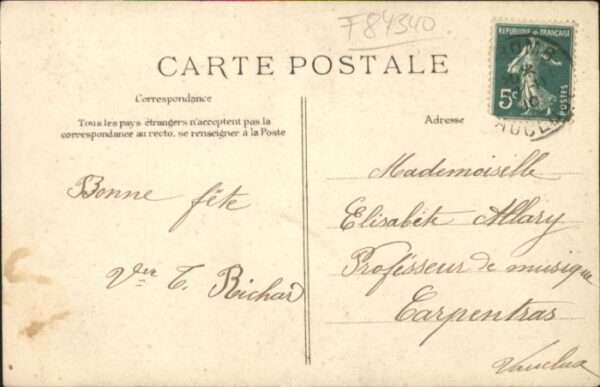 F 84340
REPUBLIQUE FRANÇAISE
5c
POSTES
CARTE POSTALE
Correspondance
Tous les pays étrangers n'acceptent pas la
correspondance au recto, se renseigner à la Poste
Adresse
Bonne fête
Vve T. Richard
Mademoiselle
Elisabete Allary
Proféssseur de musique
Carpentras
Vaucluse